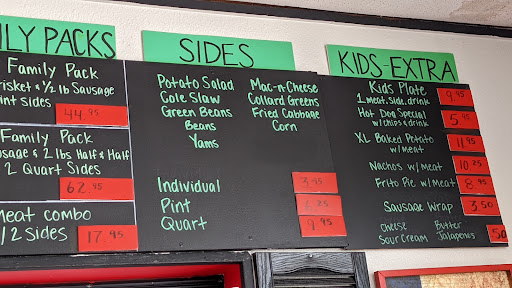 ILY PACKS
Family Pack
risket & ½ lb Sausage
int sides
44.95
Family Pack
usage & 2 lbs Half & Half
2 Quart Sides
62.95
meat combo
/2 sides
17.95
SIDES
Potato Salad
Cole Slaw
Green Beans
Beans
Yams
Mac-n-Cheese
Collard Greens
Fried Cabbage
Corn
Individual 3.95
Pint 6.25
Quart 9.95
KIDS-EXTRA
Kids Plate 9.95
1 meat, side, drink
Hot Dog Special 5.95
w/chips & drink
XL Baked Potato 11.95
w/meat
Nachos w/meat 10.25
Frito Pie w/meat 8.95
Sausage Wrap 3.50
Cheese Butter
Sour Cream Jalapenos .50